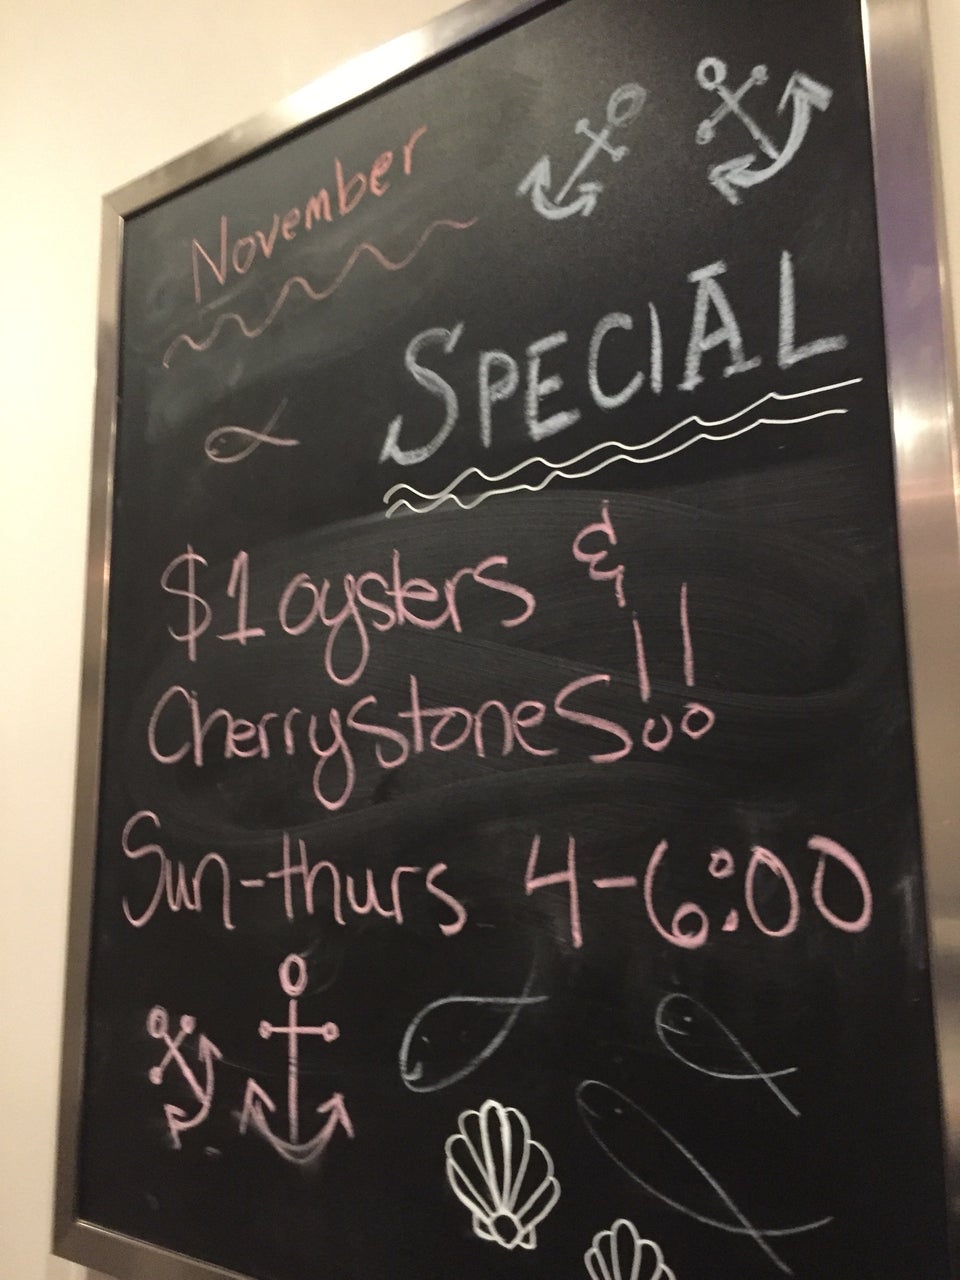 November
SPECIAL
$1 oysters &
Cherrystones!!
Sun-thurs 4-6:00